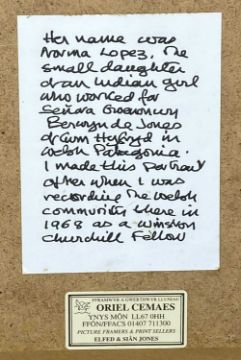 Her name was
Norma Lopez, the
small daughter
of an Indian girl
who worked for
Señora
Berwyn de Jones
of Cwm Hyfryd in
Welsh Patagonia.
I made this Portrait
of her when I was
recording the Welsh
community there in
1968 as a Winston
Churchill Fellow
FFRAMWYR A GWERTHWYR LLUNIAU
ORIEL CEMAES
YNYS MÔN LL67 0HH
FFÔN/FFACS 01407 711300
PICTURE FRAMERS & PRINT SELLERS
ELFED & SIÂN JONES